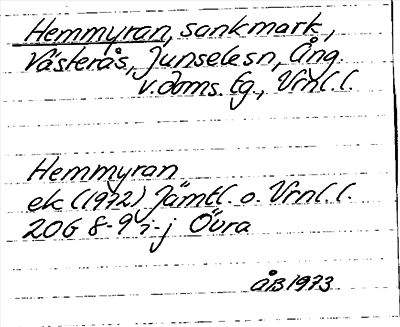 Hemmyran, sankmark,
Västerås, Junselesn, Ång.
v. doms. Eg., Vrnl. l.
Hemmyran
ek (1972) Jämtl. o. Vrnl. l.
20G 8-9 i-j Övra
ÅB 1973